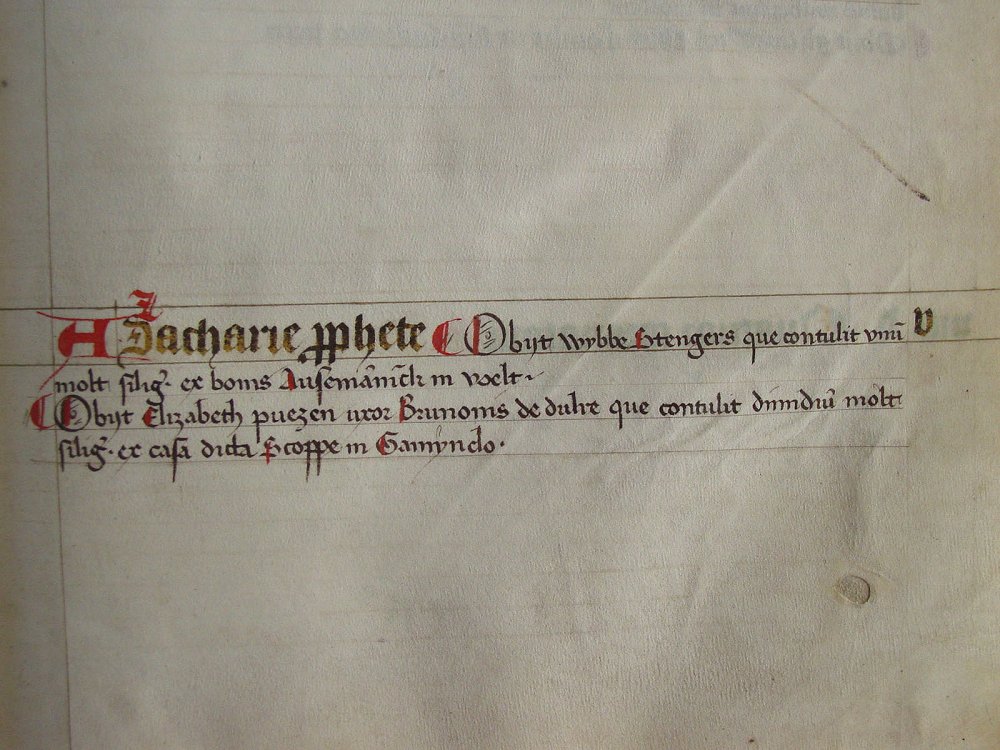 A Zacharie pphete Obijt Wybbe Stengers que contulit vnū v
molt silig̃. ex bonis Ausemām̄ck in velt
Obijt Elizabeth puezen uxor Brunonis de dulre que contulit dimidiū molt
silig̃. ex casa dicta Scoppe in Gamynclo.